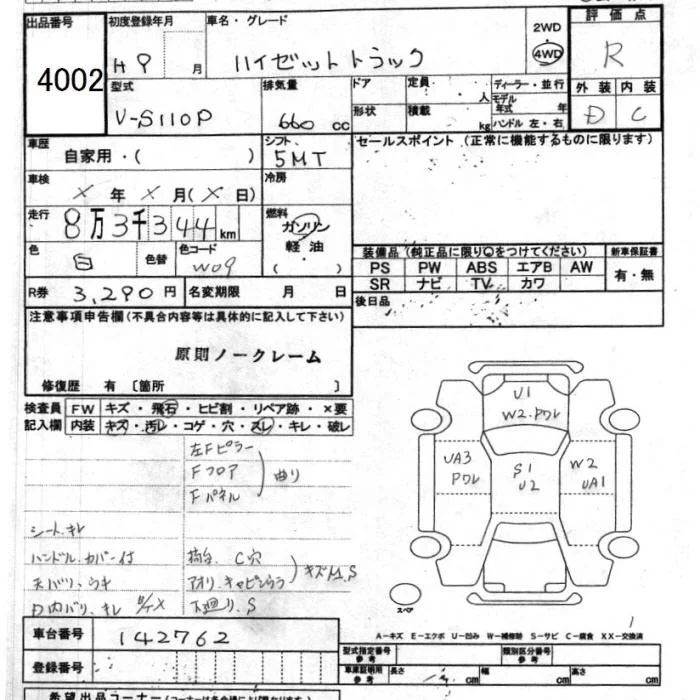 出品番号
4002
初度登録年月
H9 月
車名・グレード
ハイゼットトラック
2WD
4WD
評価点
R
型式
V-S110P
排気量
660 cc
ドア
定員 人
ディーラー・並行
モデル年式 年
形状
積載 kg
ハンドル 左・右
外装 内装
D C
車歴
自家用・( )
シフト
5MT
セールスポイント (正常に機能するものに限ります)
車検
X 年 X 月(X 日)
冷房
走行
8万3千344km
燃料
ガソリン
軽油
( )
色
白
色替
色コード
W09
装備品 (純正品に限り○をつけてください)
新車保証書
PS PW ABS エアB AW
SR ナビ TV カワ
有・無
R券 3,290円
名変期限 月 日
後日品
注意事項申告欄(不具合内容等は具体的に記入して下さい)
原則ノークレーム
修復歴 有 〔箇所 〕
検査員記入欄
FW キズ・飛石・ヒビ割・リペア跡・×要
内装 キズ・汚レ・コゲ・穴・スレ・キレ・破レ
左Fピラー
Fフロア
Fパネル
曲り
シート.キレ
ハンドル.カバー付
天バリ.ウキ
D内バリ.キレ
荷台. C穴
アオリ.キャビンウラ
キズM.S
下廻り.S
U1
W2.ワレ
UA3
ワレ
S1
U2
W2
UA1
スペア
A−キズ E−エクボ U−凹み W−補修跡 S−サビ C−腐食 XX−交換済
車台番号
142762
登録番号
型式指定番号
参考
類別区分番号
参考
車庫証明用
参考
長さ
幅
高さ
cm
希望出品コーナー